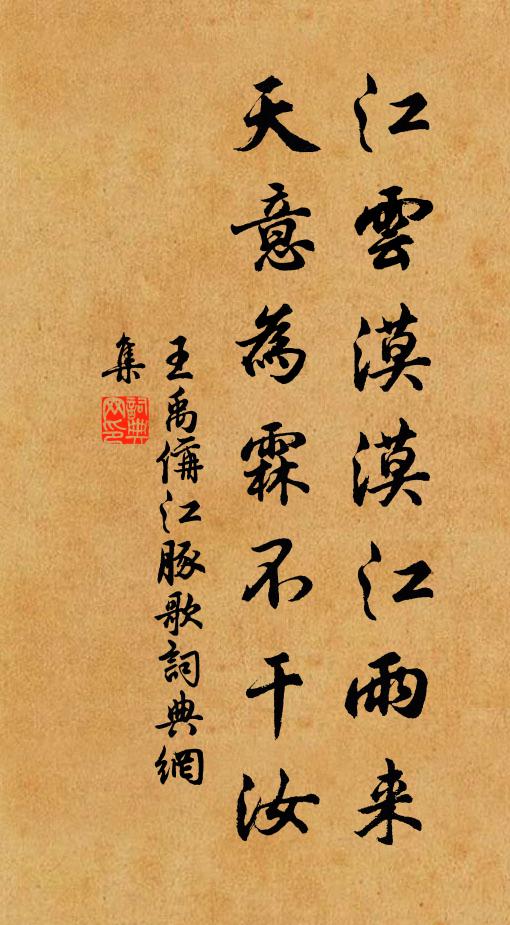 江雲漠漠江雨来
天意為霖不干汝
王禹偁江豚歌詞典網
集
詞典
网印